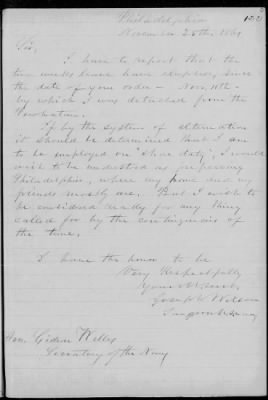 Philadelphia
November 25th 1861
Sir,
I have to report that the
two weeks leave have elapsed, since
the date of your order - Nov. 11th -
by which I was detached from the
If by the system of alternation
it should be determined that I am
to be employed on "shore duty", I would
wish to be understood as expressing
Philadelphia, where my home and my
friends mostly are. But I wish to
be considered ready for any thing
called for by the contingencies of
the times.
I have the honor to be
Very Respectfully
Your
Joseph Wilson
Surgeon U.S. Navy
Hon. Gideon Welles
Secretary of the Navy